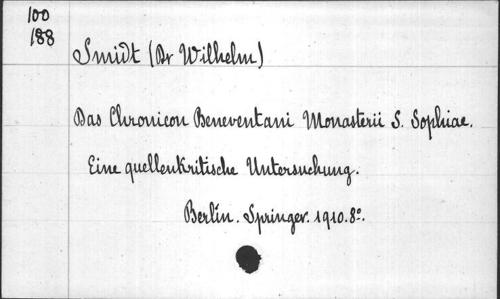 100
188
Smidt (Dr Wilhelm)
Das Chronicon Beneventani Monasterii S. Sophiae.
Eine quellenkritische Untersuchung.
Berlin. Springer. 1910. 8º.